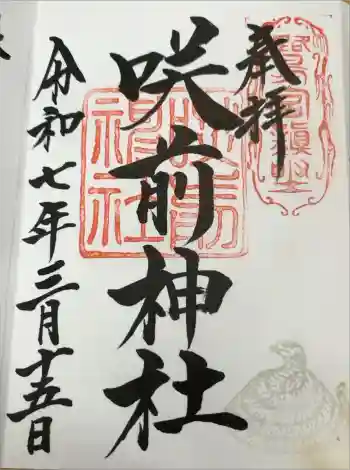 奉拝
咲前神社
令和七年三月十五日
咲前
神社